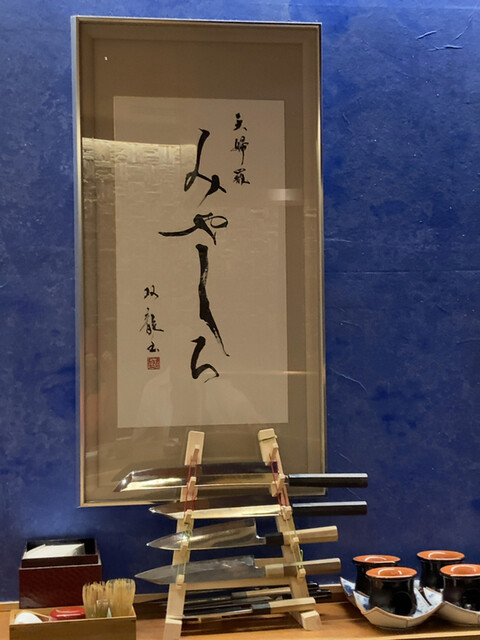 天婦羅
みやしろ
双龍書